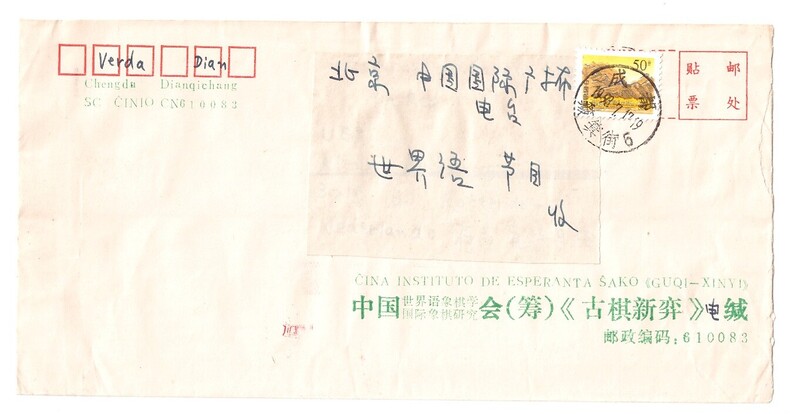 Verda Dian
Chengdu Dianqichang
SC ĈINIO CN610083
北京 中国国际广播
电台
世界语 节目
收
50分
成都
贴邮
票处
ĈINA INSTITUTO DE ESPERANTA ŜAKO《GUQI-XINYI》
中国世界语象棋学国际象棋研究会(筹)《古棋新弈》电缄
邮政编码:610083